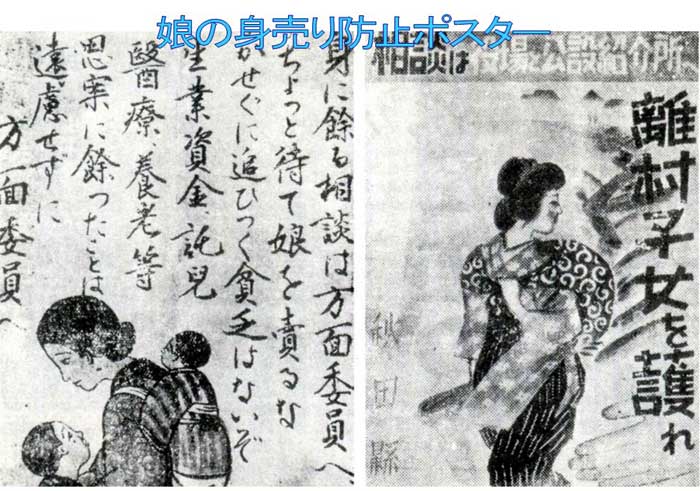 娘の身売り防止ポスター
身に餘る相談は方面委員へ
ちよつと待て娘を賣るな
かせぐに追ひつく貧乏はないぞ
生業資金、託兒
醫療、養老等
思案に餘つたことは
遠慮せずに
方面委員へ
相談は役場と公設紹介所へ
離村子女を護れ
秋田縣